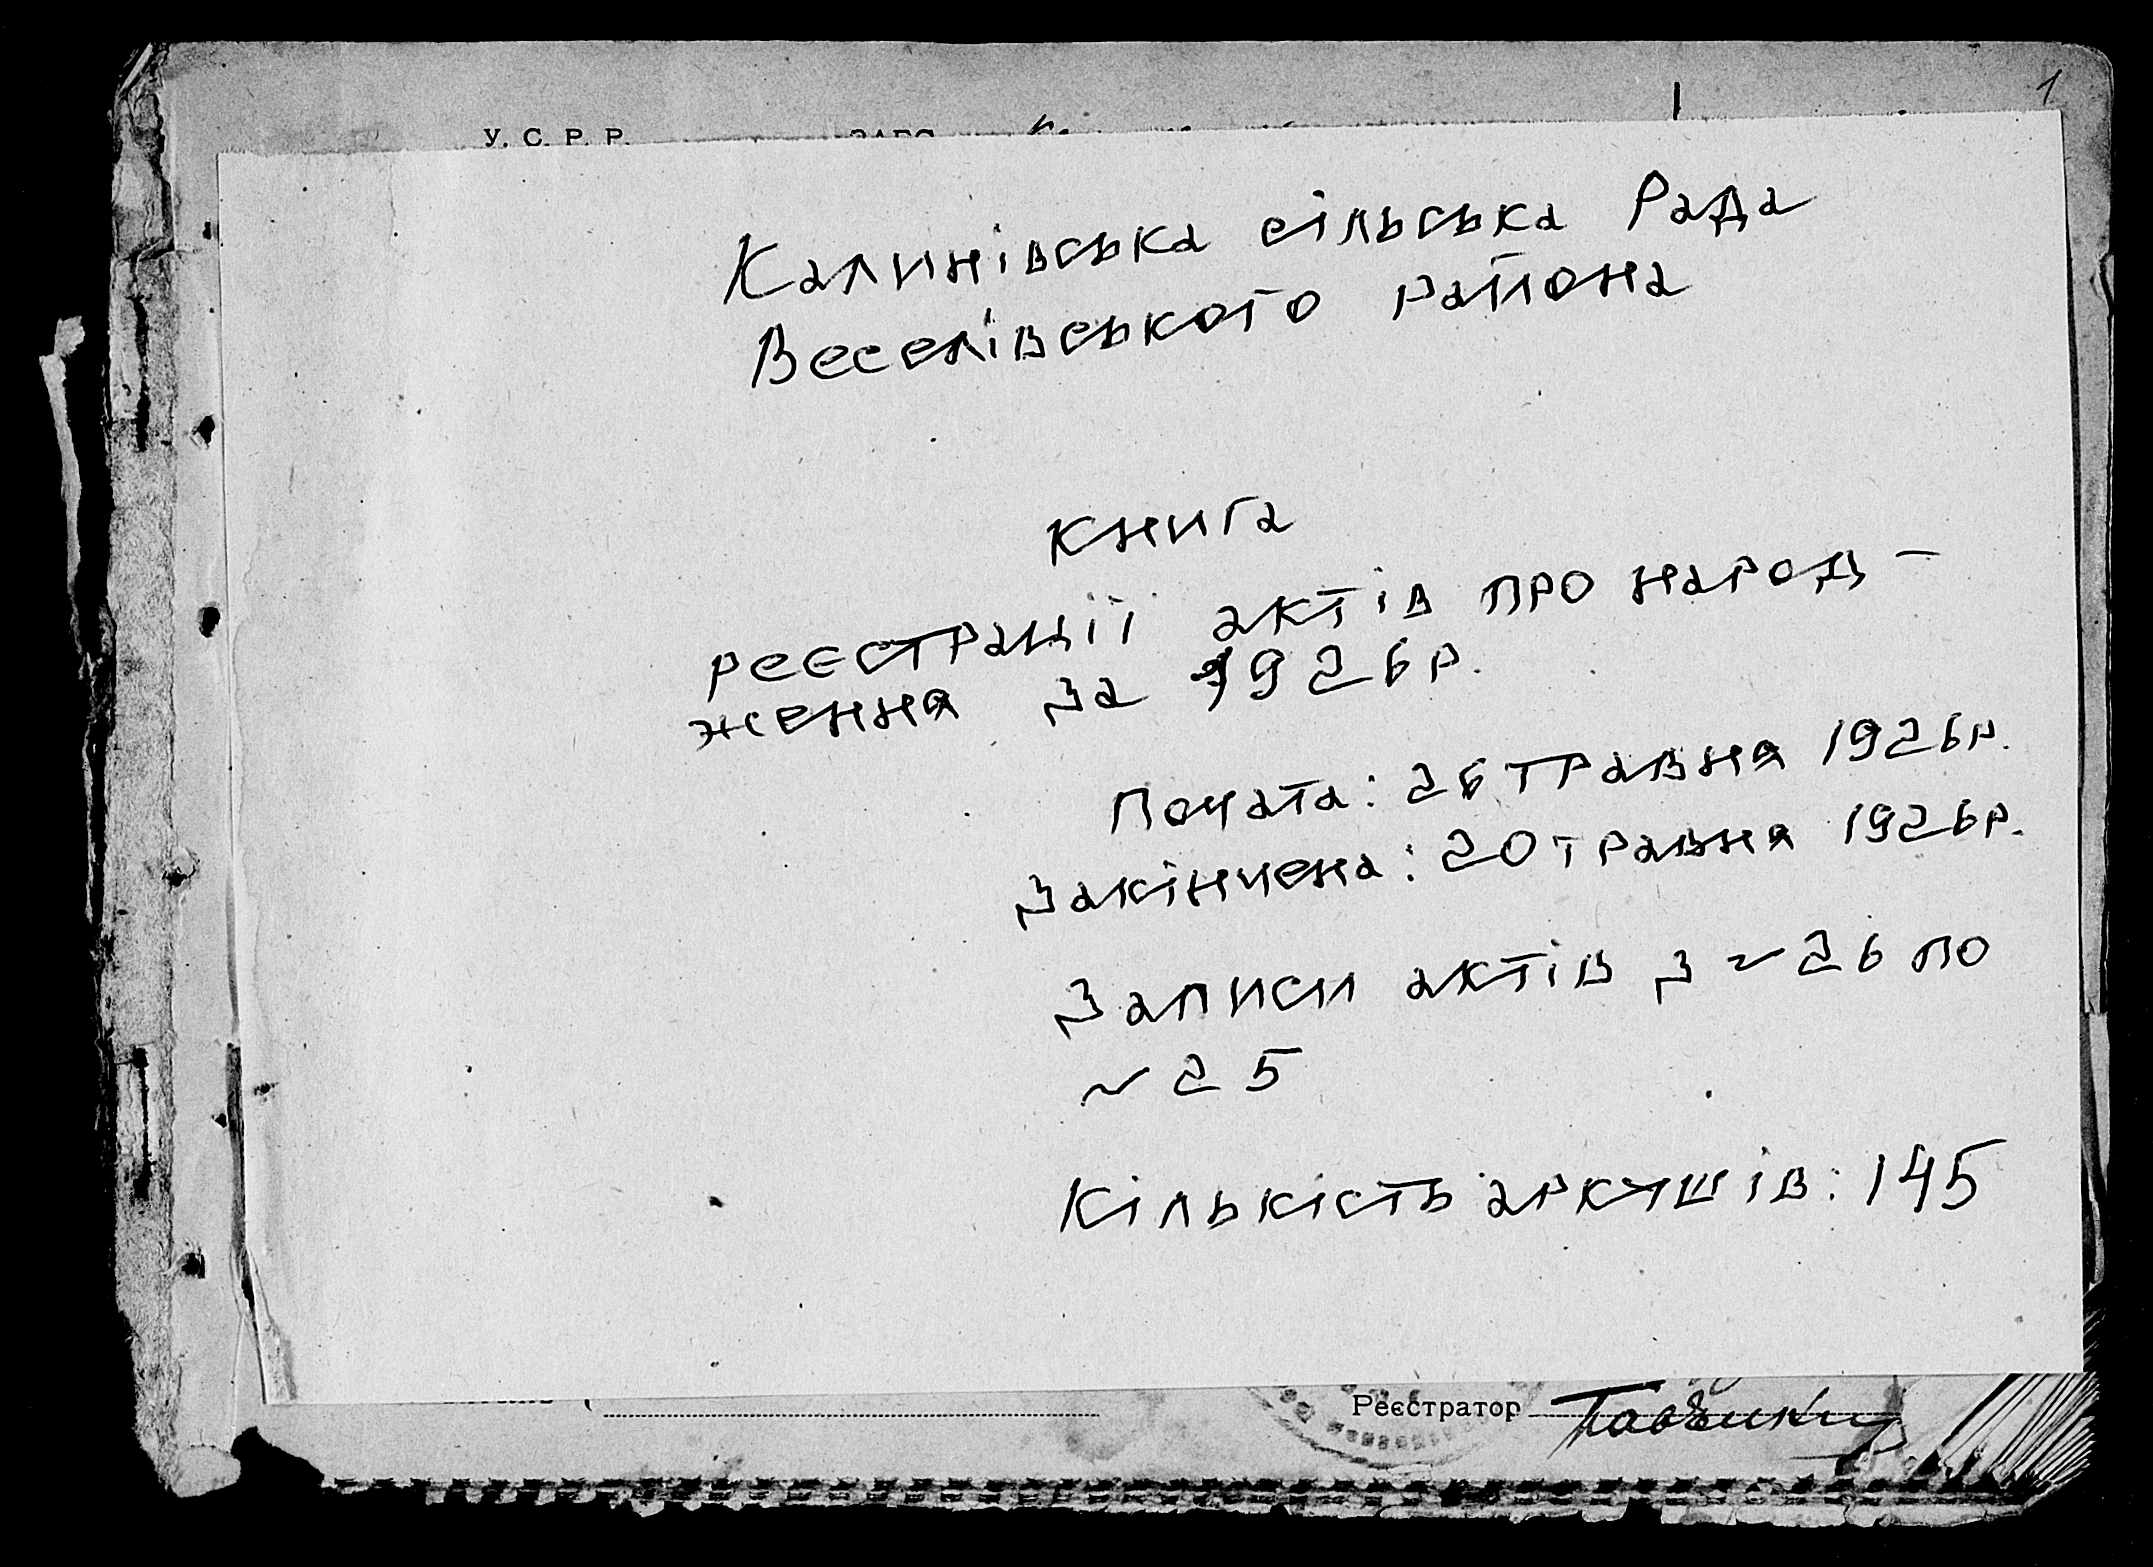 1
У. С. Р. Р.
Калинівська сільська Рада
Веселівського района
Книга
реєстрації актів про народ-
ження за 1926р.
Почата: 26 травня 1926р.
Закінчена: 20 травня 1926р.
Записи актів з ~ 26 по
~ 25
Кількість аркушів: 145
Реєстратор